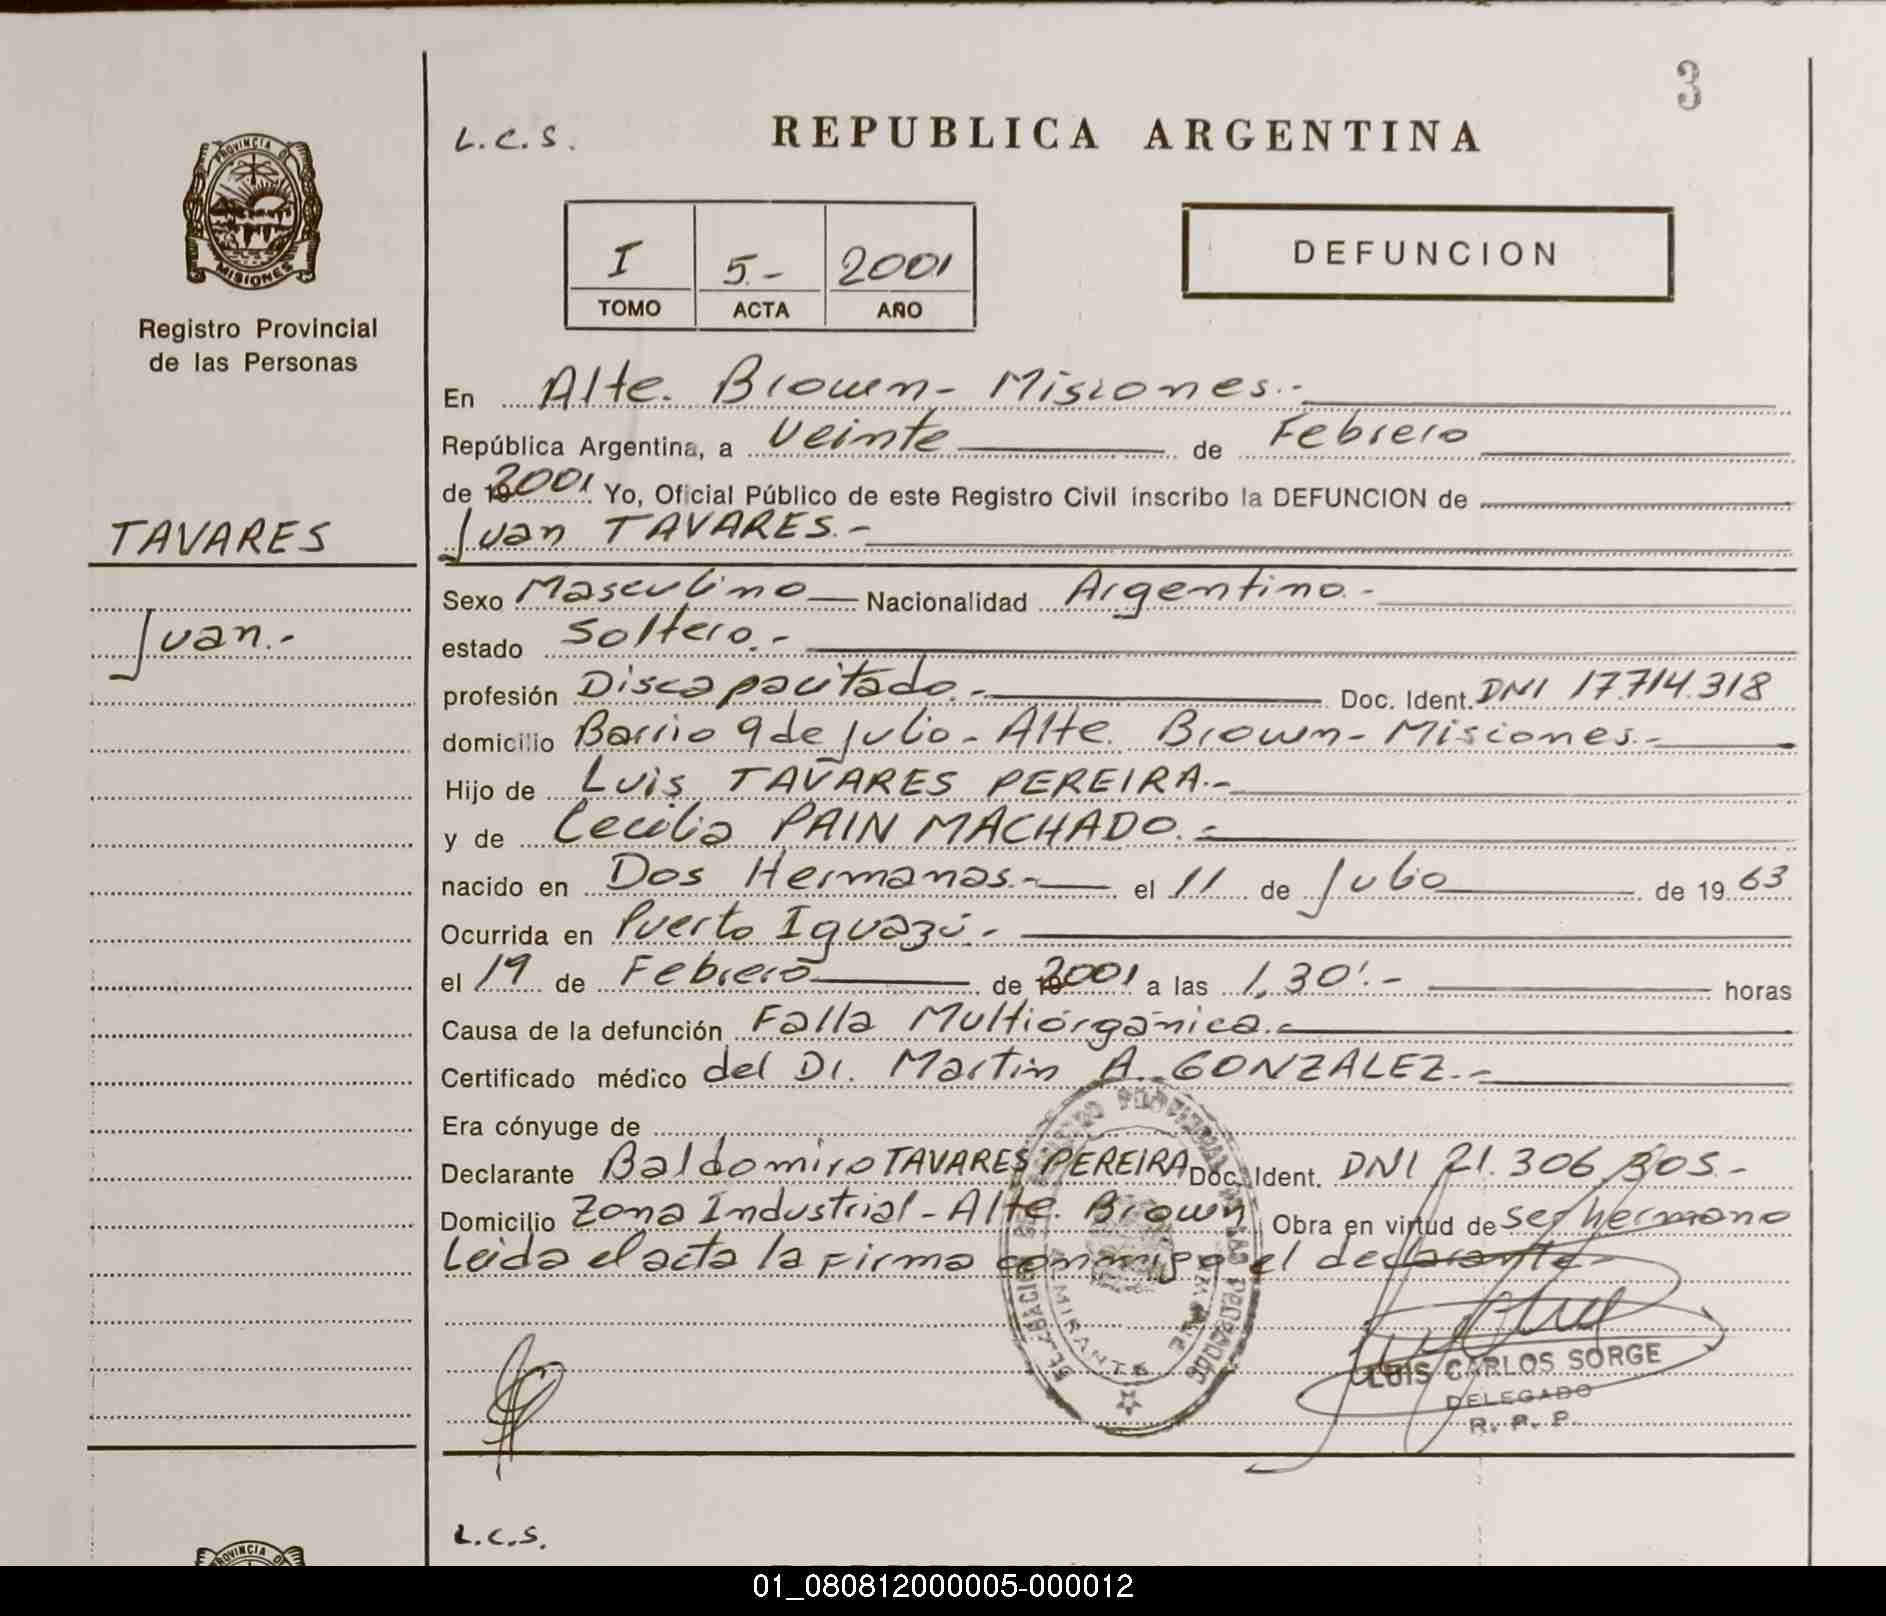 3
L.C.S.
REPUBLICA ARGENTINA
PROVINCIA DE
MISIONES
Registro Provincial
de las Personas
I 5.- 2001
TOMO ACTA AÑO
DEFUNCION
TAVARES
Juan.-
En Alte. Brown - Misiones.-
República Argentina, a Veinte de Febrero
de 2001 Yo, Oficial Público de este Registro Civil inscribo la DEFUNCION de
Juan TAVARES.-
Sexo Masculino Nacionalidad Argentino.-
estado Soltero.-
profesión Discapacitado.- Doc. Ident. DNI 17.714.318
domicilio Barrio 9 de Julio - Alte. Brown - Misiones.-
Hijo de Luis TAVARES PEREIRA.-
y de Cecilia PAIN MACHADO.-
nacido en Dos Hermanas.- el 11 de Julio de 1963
Ocurrida en Puerto Iguazú.-
el 19 de Febrero de 2001 a las 1,30'.- horas
Causa de la defunción Falla Multiorgánica.-
Certificado médico del Dr. Martin A. GONZALEZ.-
Era cónyuge de
Declarante Baldomiro TAVARES PEREIRA Doc. Ident. DNI 21.306.305.-
Domicilio Zona Industrial - Alte. Brown Obra en virtud de ser hermano
Leida el acta la firma conmigo el declarante-
LUIS CARLOS SORGE
DELEGADO
R. P. P.
L.C.S.
PROVINCIA DE
01_080812000005-000012